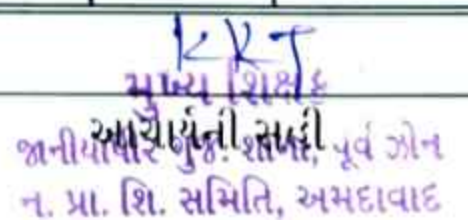 KKT
મુખ્ય શિક્ષક
આચાર્યની સહી
ગુજ. શાળા, પૂર્વ ઝોન
ન. પ્રા. શિ. સમિતિ, અમદાવાદ